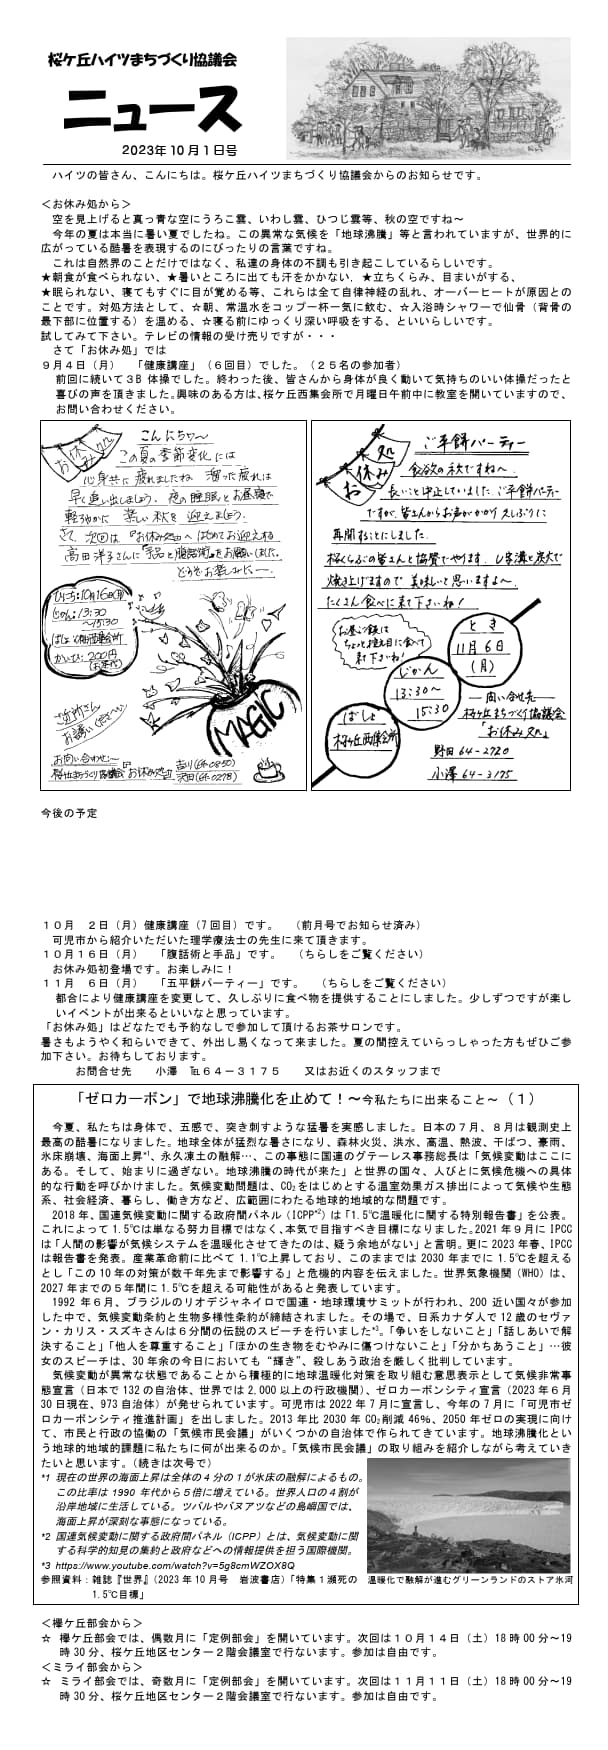 桜ケ丘ハイツまちづくり協議会
ニュース
2023年10月1日号
ハイツの皆さん、こんにちは。桜ケ丘ハイツまちづくり協議会からのお知らせです。
＜お休み処から＞
空を見上げると真っ青な空にうろこ雲、いわし雲、ひつじ雲等、秋の空ですね～
今年の夏は本当に暑い夏でしたね。この異常な気候を「地球沸騰」等と言われていますが、世界的に
広がっている酷暑を表現するのにぴったりの言葉ですね。
これは自然界のことだけではなく、私達の身体の不調も引き起こしているらしいです。
★朝食が食べられない、★暑いところに出ても汗をかかない、★立ちくらみ、目まいがする、
★眠られない、寝てもすぐに目が覚める等、これらは全て自律神経の乱れ、オーバーヒートが原因との
ことです。対処方法として、☆朝、常温水をコップ一杯一気に飲む、☆入浴時シャワーで仙骨（背骨の
最下部に位置する）を温める、☆寝る前にゆっくり深い呼吸をする、といいらしいです。
試してみて下さい。テレビの情報の受け売りですが・・・
さて「お休み処」では
９月４日（月）　「健康講座」（６回目）でした。（２５名の参加者）
前回に続いて３B 体操でした。終わった後、皆さんから身体が良く動いて気持ちのいい体操だったと
喜びの声を頂きました。興味のある方は、桜ケ丘西集会所で月曜日午前中に教室を開いていますので、
お問い合わせください。
お休み処
こんにちわ～
この夏の季節変化には
心身共に疲れましたね 溜った疲れは
早く追い出しましょう。夜の睡眠とお昼寝で
軽やかに 楽しい秋を 迎えましょう。
さて、次回は 『お休み処』へはじめてお迎えする
高田洋子さんに『手品と腹話術』をお願いしました。
どうぞお楽しみに―.
ひにち:10月16日(月)
じかん:13:30
～15:30
ばしょ:桜ケ丘西集会所
かいひ:200円
(お茶代)
ご近所さん
お誘いくださ～い
MAGIC
お問い合わせ:～
桜ケ丘まちづくり協議会『お休み処』
吉川(64-0850)
沢田(64-0278)
お休み処
ご平餅パーティー
食欲の秋ですね～
長いこと中止していました、ご平餅パーティー
ですが、皆さんからお声がかかり久しぶりに
再開することにしました.
桜くらぶの皆さんと協賛でやります. U字溝と炭火で
焼き上げますので 美味しいと思いますよ～.
たくさん食べに来て下さいね！
お昼ご飯は
ちょっと控え目に食べて
来て下さいね！
とき
11月6日
(月)
じかん
13:30～
15:30
ばしょ
桜ケ丘西集会所
―問い合せ先―
桜ケ丘まちづくり協議会
「お休み処」
野田 64-2720
小澤 64-3175
今後の予定
１０月　２日（月）健康講座（７回目）です。　（前月号でお知らせ済み）
可児市から紹介いただいた理学療法士の先生に来て頂きます。
１０月１６日（月）　「腹話術と手品」です。　（ちらしをご覧ください）
お休み処初登場です。お楽しみに！
１１月　６日（月）　「五平餅パーティー」です。　（ちらしをご覧ください）
都合により健康講座を変更して、久しぶりに食べ物を提供することにしました。少しずつですが楽し
いイベントが出来るといいなと思っています。
「お休み処」はどなたでも予約なしで参加して頂けるお茶サロンです。
暑さもようやく和らいできて、外出し易くなって来ました。夏の間控えていらっしゃった方もぜひご参
加下さい。お待ちしております。
お問合せ先　　小澤　℡６４－３１７５　　又はお近くのスタッフまで
「ゼロカーボン」で地球沸騰化を止めて！～今私たちに出来ること～（１）
今夏、私たちは身体で、五感で、突き刺すような猛暑を実感しました。日本の７月、８月は観測史上
最高の酷暑になりました。地球全体が猛烈な暑さになり、森林火災、洪水、高温、熱波、干ばつ、豪雨、
氷床崩壊、海面上昇*1、永久凍土の融解…、この事態に国連のグテーレス事務総長は「気候変動はここに
ある。そして、始まりに過ぎない。地球沸騰の時代が来た」と世界の国々、人びとに気候危機への具体
的な行動を呼びかけました。気候変動問題は、CO₂をはじめとする温室効果ガス排出によって気候や生態
系、社会経済、暮らし、働き方など、広範囲にわたる地球的地域的な問題です。
2018年、国連気候変動に関する政府間パネル（ICPP*2）は「1.5℃温暖化に関する特別報告書」を公表。
これによって 1.5℃は単なる努力目標ではなく、本気で目指すべき目標になりました。2021年９月に IPCC
は「人間の影響が気候システムを温暖化させてきたのは、疑う余地がない」と言明。更に 2023年春、IPCC
は報告書を発表。産業革命前に比べて 1.1℃上昇しており、このままでは 2030 年までに 1.5℃を超える
とし「この 10年の対策が数千年先まで影響する」と危機的内容を伝えました。世界気象機関（WHO）は、
2027年までの５年間に 1.5℃を超える可能性があると発表しています。
1992 年６月、ブラジルのリオデジャネイロで国連・地球環境サミットが行われ、200 近い国々が参加
した中で、気候変動条約と生物多様性条約が締結されました。その場で、日系カナダ人で 12歳のセヴァ
ン・カリス・スズキさんは６分間の伝説のスピーチを行いました*3。「争いをしないこと」「話しあいで解
決すること」「他人を尊重すること」「ほかの生き物をむやみに傷つけないこと」「分かちあうこと」…彼
女のスピーチは、30年余の今日においても“輝き”、殺しあう政治を厳しく批判しています。
気候変動が異常な状態であることから積極的に地球温暖化対策を取り組む意思表示として気候非常事
態宣言（日本で 132の自治体、世界では 2,000以上の行政機関）、ゼロカーボンシティ宣言（2023年６月
30日現在、973自治体）が発せられています。可児市は 2022年７月に宣言し、今年の７月に「可児市ゼ
ロカーボンシティ推進計画」を出しました。2013年比 2030年 CO₂削減 46％、2050年ゼロの実現に向け
て、市民と行政の協働の「気候市民会議」がいくつかの自治体で作られてきています。地球沸騰化とい
う地球的地域的課題に私たちに何が出来るのか。「気候市民会議」の取り組みを紹介しながら考えていき
たいと思います。（続きは次号で）
*1 現在の世界の海面上昇は全体の４分の１が氷床の融解によるもの。
この比率は 1990 年代から５倍に増えている。世界人口の４割が
沿岸地域に生活している。ツバルやバヌアツなどの島嶼国では、
海面上昇が深刻な事態になっている。
*2 国連気候変動に関する政府間パネル（ICPP）とは、気候変動に関
する科学的知見の集約と政府などへの情報提供を担う国際機関。
*3 https://www.youtube.com/watch?v=5g8cmWZOX8Q
参照資料：雑誌『世界』（2023年10月号　岩波書店）「特集１瀕死の
1.5℃目標」
温暖化で融解が進むグリーンランドのストア氷河
＜欅ケ丘部会から＞
☆ 欅ケ丘部会では、偶数月に「定例部会」を開いています。次回は１０月１４日（土）18時00分～19
時30分、桜ケ丘地区センター２階会議室で行ないます。参加は自由です。
＜ミライ部会から＞
☆ ミライ部会では、奇数月に「定例部会」を開いています。次回は１１月１１日（土）18時00分～19
時30分、桜ケ丘地区センター２階会議室で行ないます。参加は自由です。